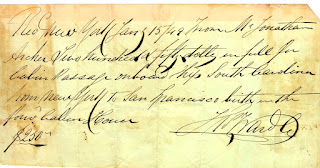 Recd New York Jany 15/49 From Mr Jonathan
Archer Two Hundred & fifty dolls in full for
Cabin Passage on board Ship South Carolina
from New York to San Francisco birth in the
forwd Cabin House
$250